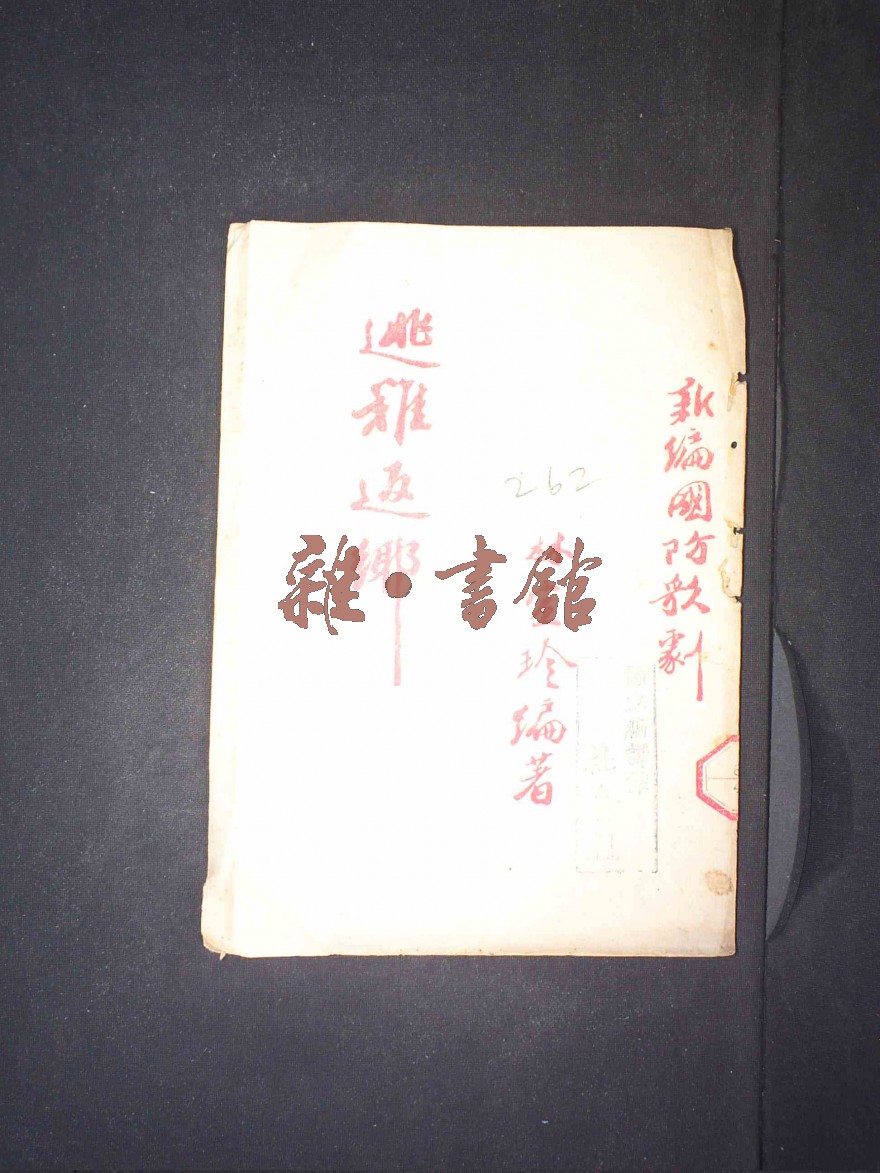 新編國防歌劇
珍編著
262
逃難返鄉
雜·書館